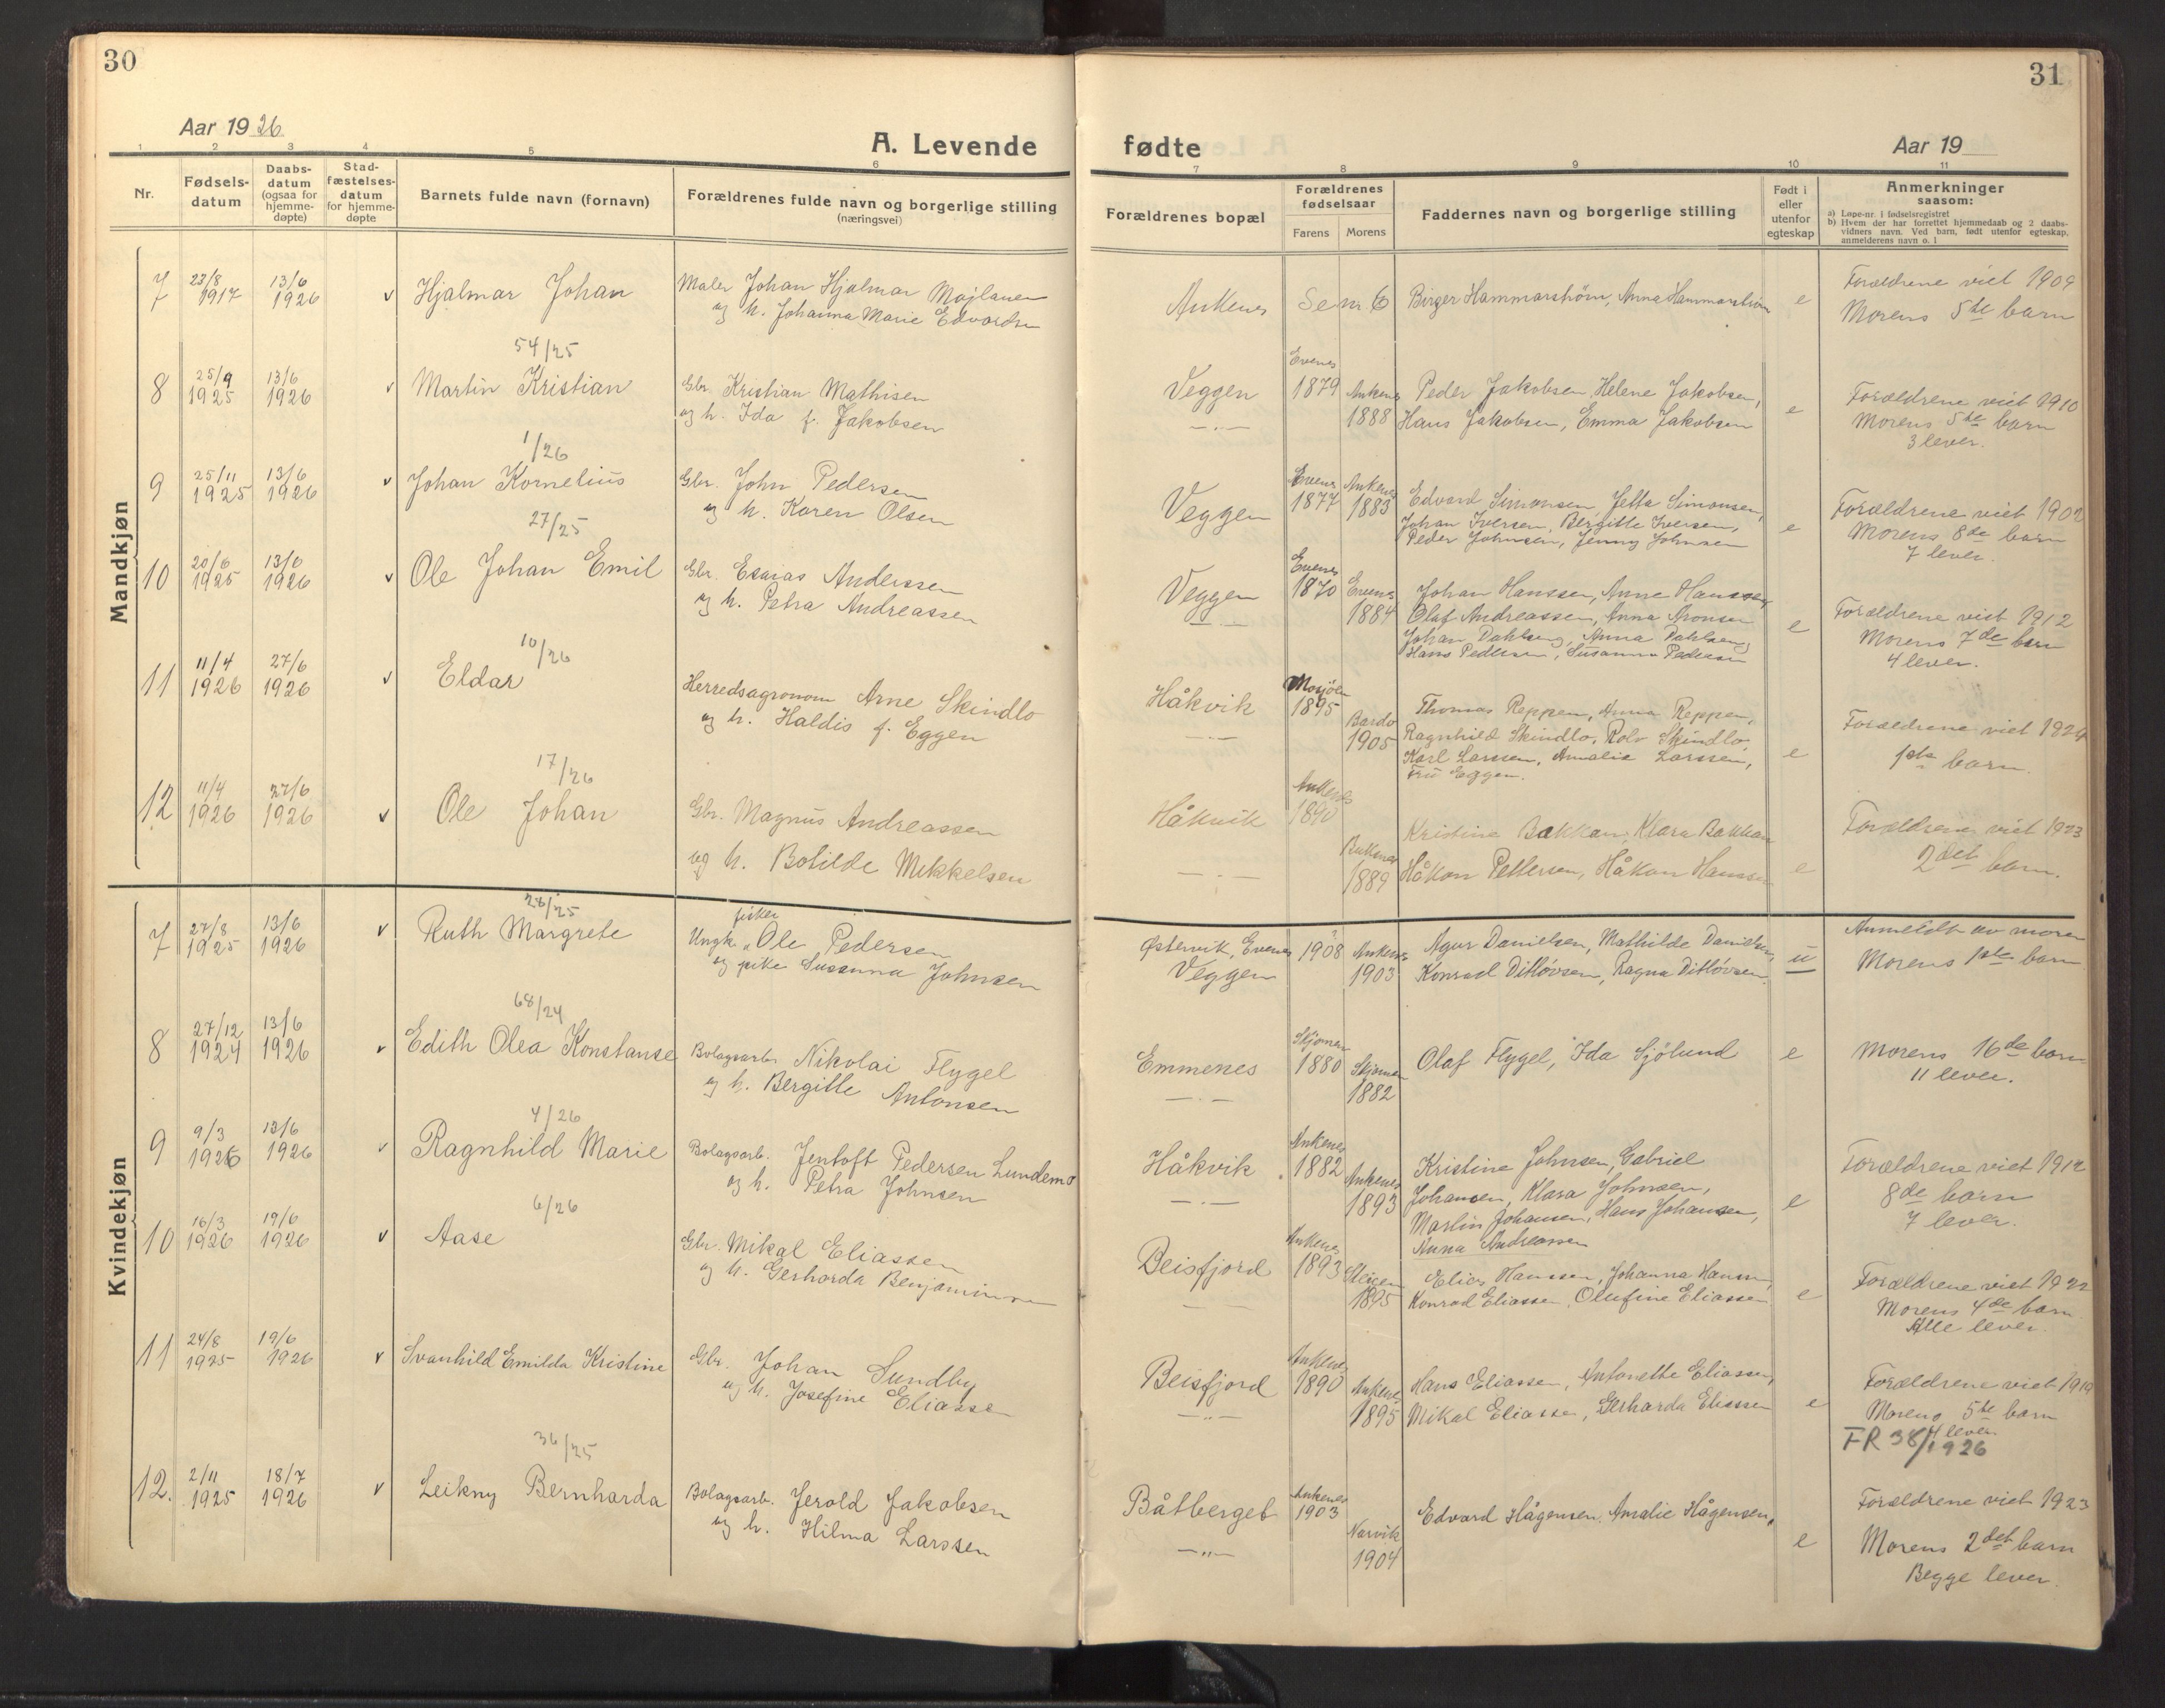 30
Aar 1926
A. Levende
1 2 3 4 5 6
Nr.
Fødsels-
datum
Daabs-
datum
(ogsaa for
hjemme-
døpte)
Stad-
fæstelses-
datum
for hjemme-
døpte
Barnets fulde navn (fornavn)
Forældrenes fulde navn og borgerlige stilling
(næringsvei)
Mandkjøn
7 23/8 1917 13/6 1926 v Hjalmar Johan
Maler Johan Hjalmar Majlauer
og h. Johanna Marie Edvardsen
54/25
8 25/9 1925 13/6 1926 v Martin Kristian
Gbr. Kristian Mathisen
og h. Ida f. Jakobsen
1/26
9 25/11 1925 13/6 1926 v Johan Kornelius
Gbr. John Pedersen
og h. Karen Olsen
27/25
10 20/6 1925 13/6 1926 v Ole Johan Emil
Gbr. Esaias Anderssen
og h. Petra Andreassen
10/26
11 11/4 1926 27/6 1926 v Eldar
Herredsagronom Arne Skindlo
og h. Haldis f. Eggen
17/26
12 11/4 1926 27/6 1926 v Ole Johan
Gbr. Magnus Andreassen
og h. Botilde Mikkelsen
Kvindekjøn
26/25
7 27/8 1925 13/6 1926 v Ruth Margrete
fisker
Ungk. Ole Pedersen
og pike Susanna Johnsen
68/24
8 27/12 1924 13/6 1926 v Edith Olea Konstanse
Bolagsarb. Nikolai Flygel
og h. Bergitte Antonsen
4/26
9 9/3 1926 13/6 1926 v Ragnhild Marie
Bolagsarb. Jentoft Pedersen Lundemo
og h. Petra Johnsen
6/26
10 16/3 1926 19/6 1926 v Aase
Gbr. Mikal Eliassen
og h. Gerharda Benjaminsen
11 24/8 1925 19/6 1926 v Svanhild Emilda Kristine
Gbr. Johan Sundby
og h. Josefine Eliassen
36/25
12. 2/11 1925 18/7 1926 v Leikny Bernharda
Bolagsarb. Jerold Jakobsen
og h. Hilma Larssen
31
fødte
Aar 19
7 8 9 10 11
Forældrenes bopæl
Forældrenes
fødselsaar
Farens Morens
Faddernes navn og borgerlige stilling
Født i
eller
utenfor
egteskap
Anmerkninger
saasom:
a) Løpe-nr. i fødselsregistret
b) Hvem der har forrettet hjemmedaab og 2 daabs-
vidners navn. Ved barn, født utenfor egteskap,
anmelderens navn o. l
Ankenes Se nr. 6 Birger Hammarstrøm, Anna Hammarstrøm e
Forældrene viet 1909
Morens 5te barn
Veggen Evenes 1879 Ankenes 1888
Peder Jakobsen, Helene Jakobsen,
Hans Jakobsen, Emma Jakobsen e
Forældrene viet 1910
Morens 5te barn
3 lever.
Veggen Evenes 1877 Ankenes 1883
Edvard Simonsen, Jetta Simonsen,
Johan Iversen, Bergitte Iversen,
Peder Johnsen, Jenny Johnsen e
Forældrene viet 1902
Morens 8de barn
7 lever.
Veggen Evenes 1870 Evenes 1884
Johan Hanssen, Anne Hanssen,
Olaf Andreassen, Anna Aronsen
Johan Dahlseng, Anna Dahlseng
Hans Pedersen, Susanna Pedersen e
Forældrene viet 1912
Morens 7de barn
4 lever.
Håkvik Mosjøen 1895 Bardo 1905
Thomas Reppen, Anna Reppen,
Ragnhild Skindlo, Rolv Skindlo,
Karl Larssen, Amalie Larssen,
Fru Eggen. e
Forældrene viet 1924
1ste barn.
Håkvik Ankenes 1890 1889
Kristine Bakkan, Klara Bakkan
Håkon Pettersen, Håkon Hanssen e
Forældrene viet 1923
2det barn.
Østervik, Evenes 1908 Ankenes 1903
Veggen
Agur Danielsen, Mathilde Danielsen,
Konrad Ditløvsen, Ragna Ditløvsen. u
Anmeldt av moren
Morens 1ste barn
Emmenes Skjomen 1880 Skjomen 1882
Olaf Flygel, Ida Sjölund e
Morens 16de barn
11 lever.
Håkvik Ankenes 1882 Ankenes 1893
Kristine Johnsen, Gabriel
Johansen, Klara Johnsen,
Martin Johansen, Hans Johansen,
Anna Andreassen e
Forældrene viet 1912
8de barn
7 lever.
Beisfjord Ankenes 1893 Steigen 1895
Elias Hanssen, Johanna Hanssen,
Konrad Eliassen, Olufine Eliassen e
Forældrene viet 1922
Morens 4de barn
Alle lever.
Beisfjord Ankenes 1890 Ankenes 1895
Hans Eliassen, Antonette Eliassen,
Mikal Eliassen, Gerharda Eliassen e
Forældrene viet 1919
Morens 5te barn
4 lever
FR 38/1926
Båtberget Ankenes 1903 Narvik 1904
Edvard Hågensen, Amalie Hågensen, e
Forældrene viet 1923
Morens 2det barn
Begge lever.